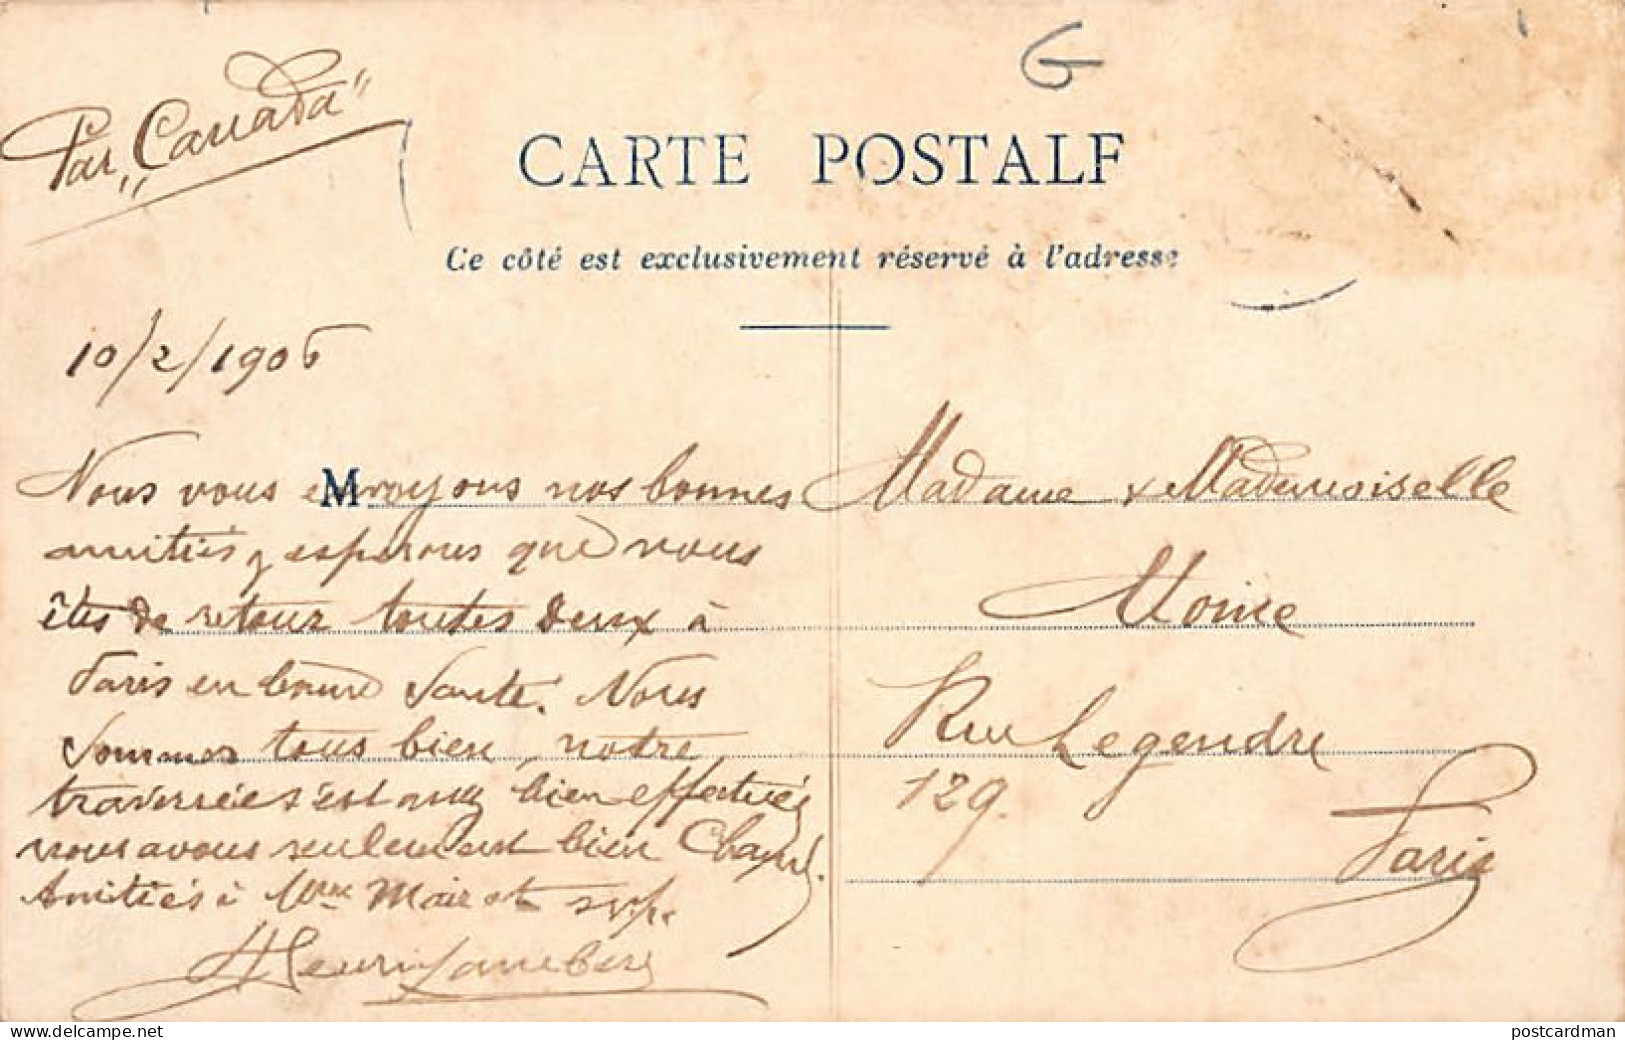 G
Par "Canada"
CARTE POSTALE
Ce côté est exclusivement réservé à l'adresse
10/2/1906
M
Nous vous envoyons nos bonnes
amitiés, espérons que vous
êtes de retour toutes deux à
Paris en bonne Santé. Nous
Sommes tous bien, notre
traversée s'est bien effectuée
nous avons seulement bien Chaud.
Amitiés à Mme svp.
Henri
Madame & Mademoiselle
Moine
Rue Legendre
129.
Paris
www.delcampe.net
postcardman